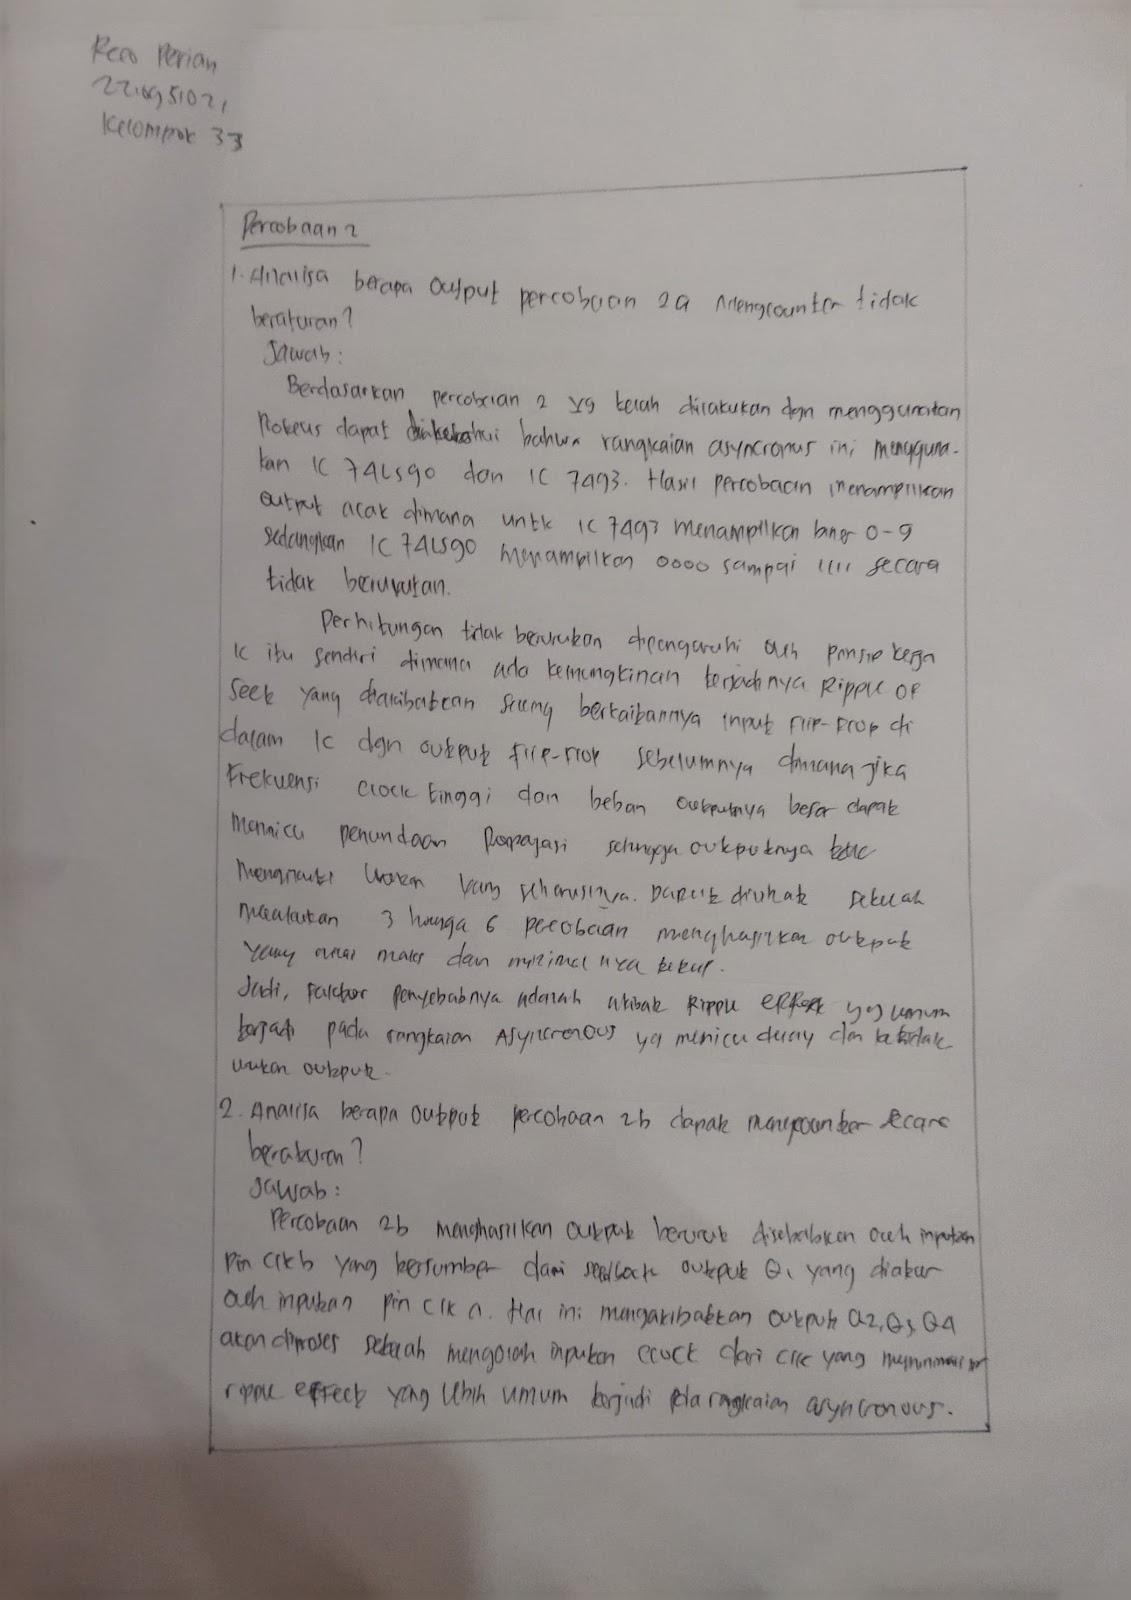 Perian
Kelompok 33
Percobaan 2
1. Analisa berapa output percobaan 2a Mengcounter tidak
beraturan?
Jawab:
Berdasarkan percobaan 2 yg telah dilakukan dgn menggunakan
Proteus dapat diketahui bahwa rangkaian asyncronus ini mengguna-
kan IC 74LS90 dan IC 7493. Hasil percobaan menampilkan
output acak dimana untk IC 7493 menampilkan biner 0-9
sedangkan IC 74LS90 menampilkan 0000 sampai 1111 secara
tidak berurutan.
Perhitungan tidak berurutan dipengaruhi oleh prinsip kerja
IC itu sendiri dimana ada kemungkinan terjadinya Ripple
yang diakibatkan berkaitannya input Flip-Flop di
dalam IC dgn output flip-flop sebelumnya dimana jika
Frekuensi clock tinggi dan beban outputnya besar dapat
memicu penundaan Propagasi sehingga outputnya
yang seharusnya. Dapat dilihat setelah
melakukan 3 hingga 6 percobaan menghasilkan output
yang maks dan minimal nya tetap.
Jadi, faktor penyebabnya adalah akibat Ripple effect yg umum
terjadi pada rangkaian Asyncronous yg memicu delay dan
urutan output.
2. Analisa berapa output percobaan 2b dapat mengcounter secara
beraturan?
Jawab:
Percobaan 2b menghasilkan output berurut disebabkan oleh inputan
pin clk b yang bersumber dari feedback output Q1 yang diatur
oleh inputan pin clk a. Hal ini mengakibatkan output Q2, Q3, Q4
akan diproses setelah mengolah inputan clock dari clk yang
ripple effect yang lebih umum terjadi pda rangkaian asyncronous.